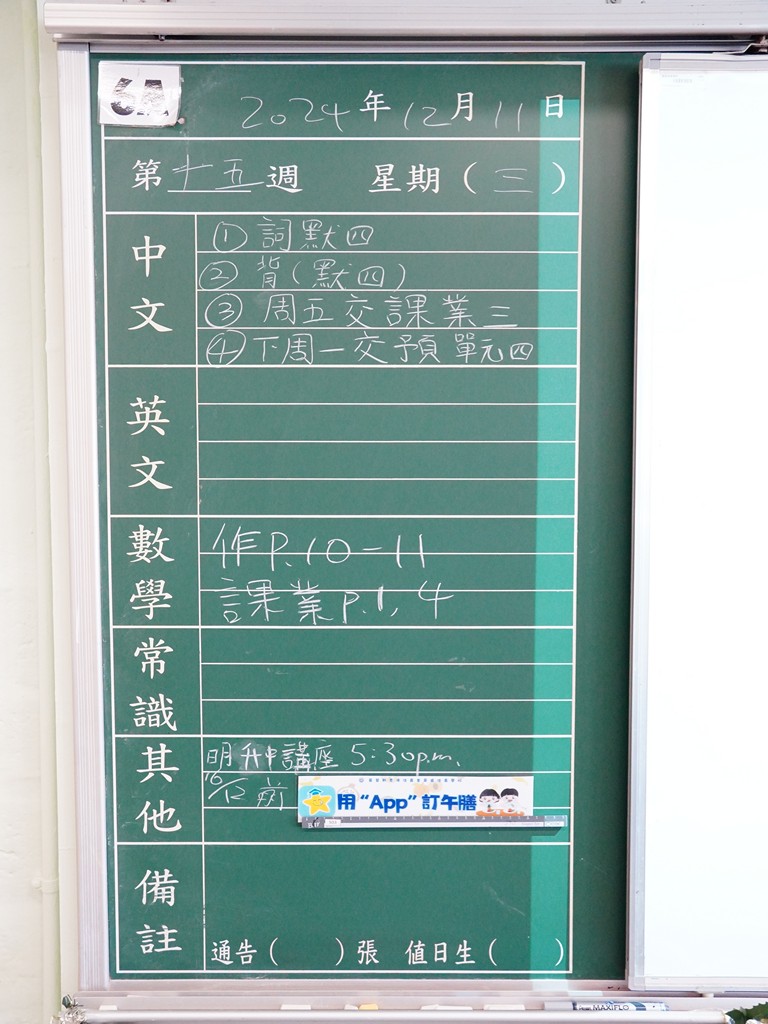 6A
2024年12月11日
第十五週 星期(三)
中文
①詞默四
②背(默四)
③周五交課業三
④下周一交預單元四
英文
數學
作P.10-11
課業p.1, 4
常識
其他
明升中講座 5:30p.m.
16/12前
用“App”訂午膳
備註
通告( )張 值日生( )
MAXIFLO